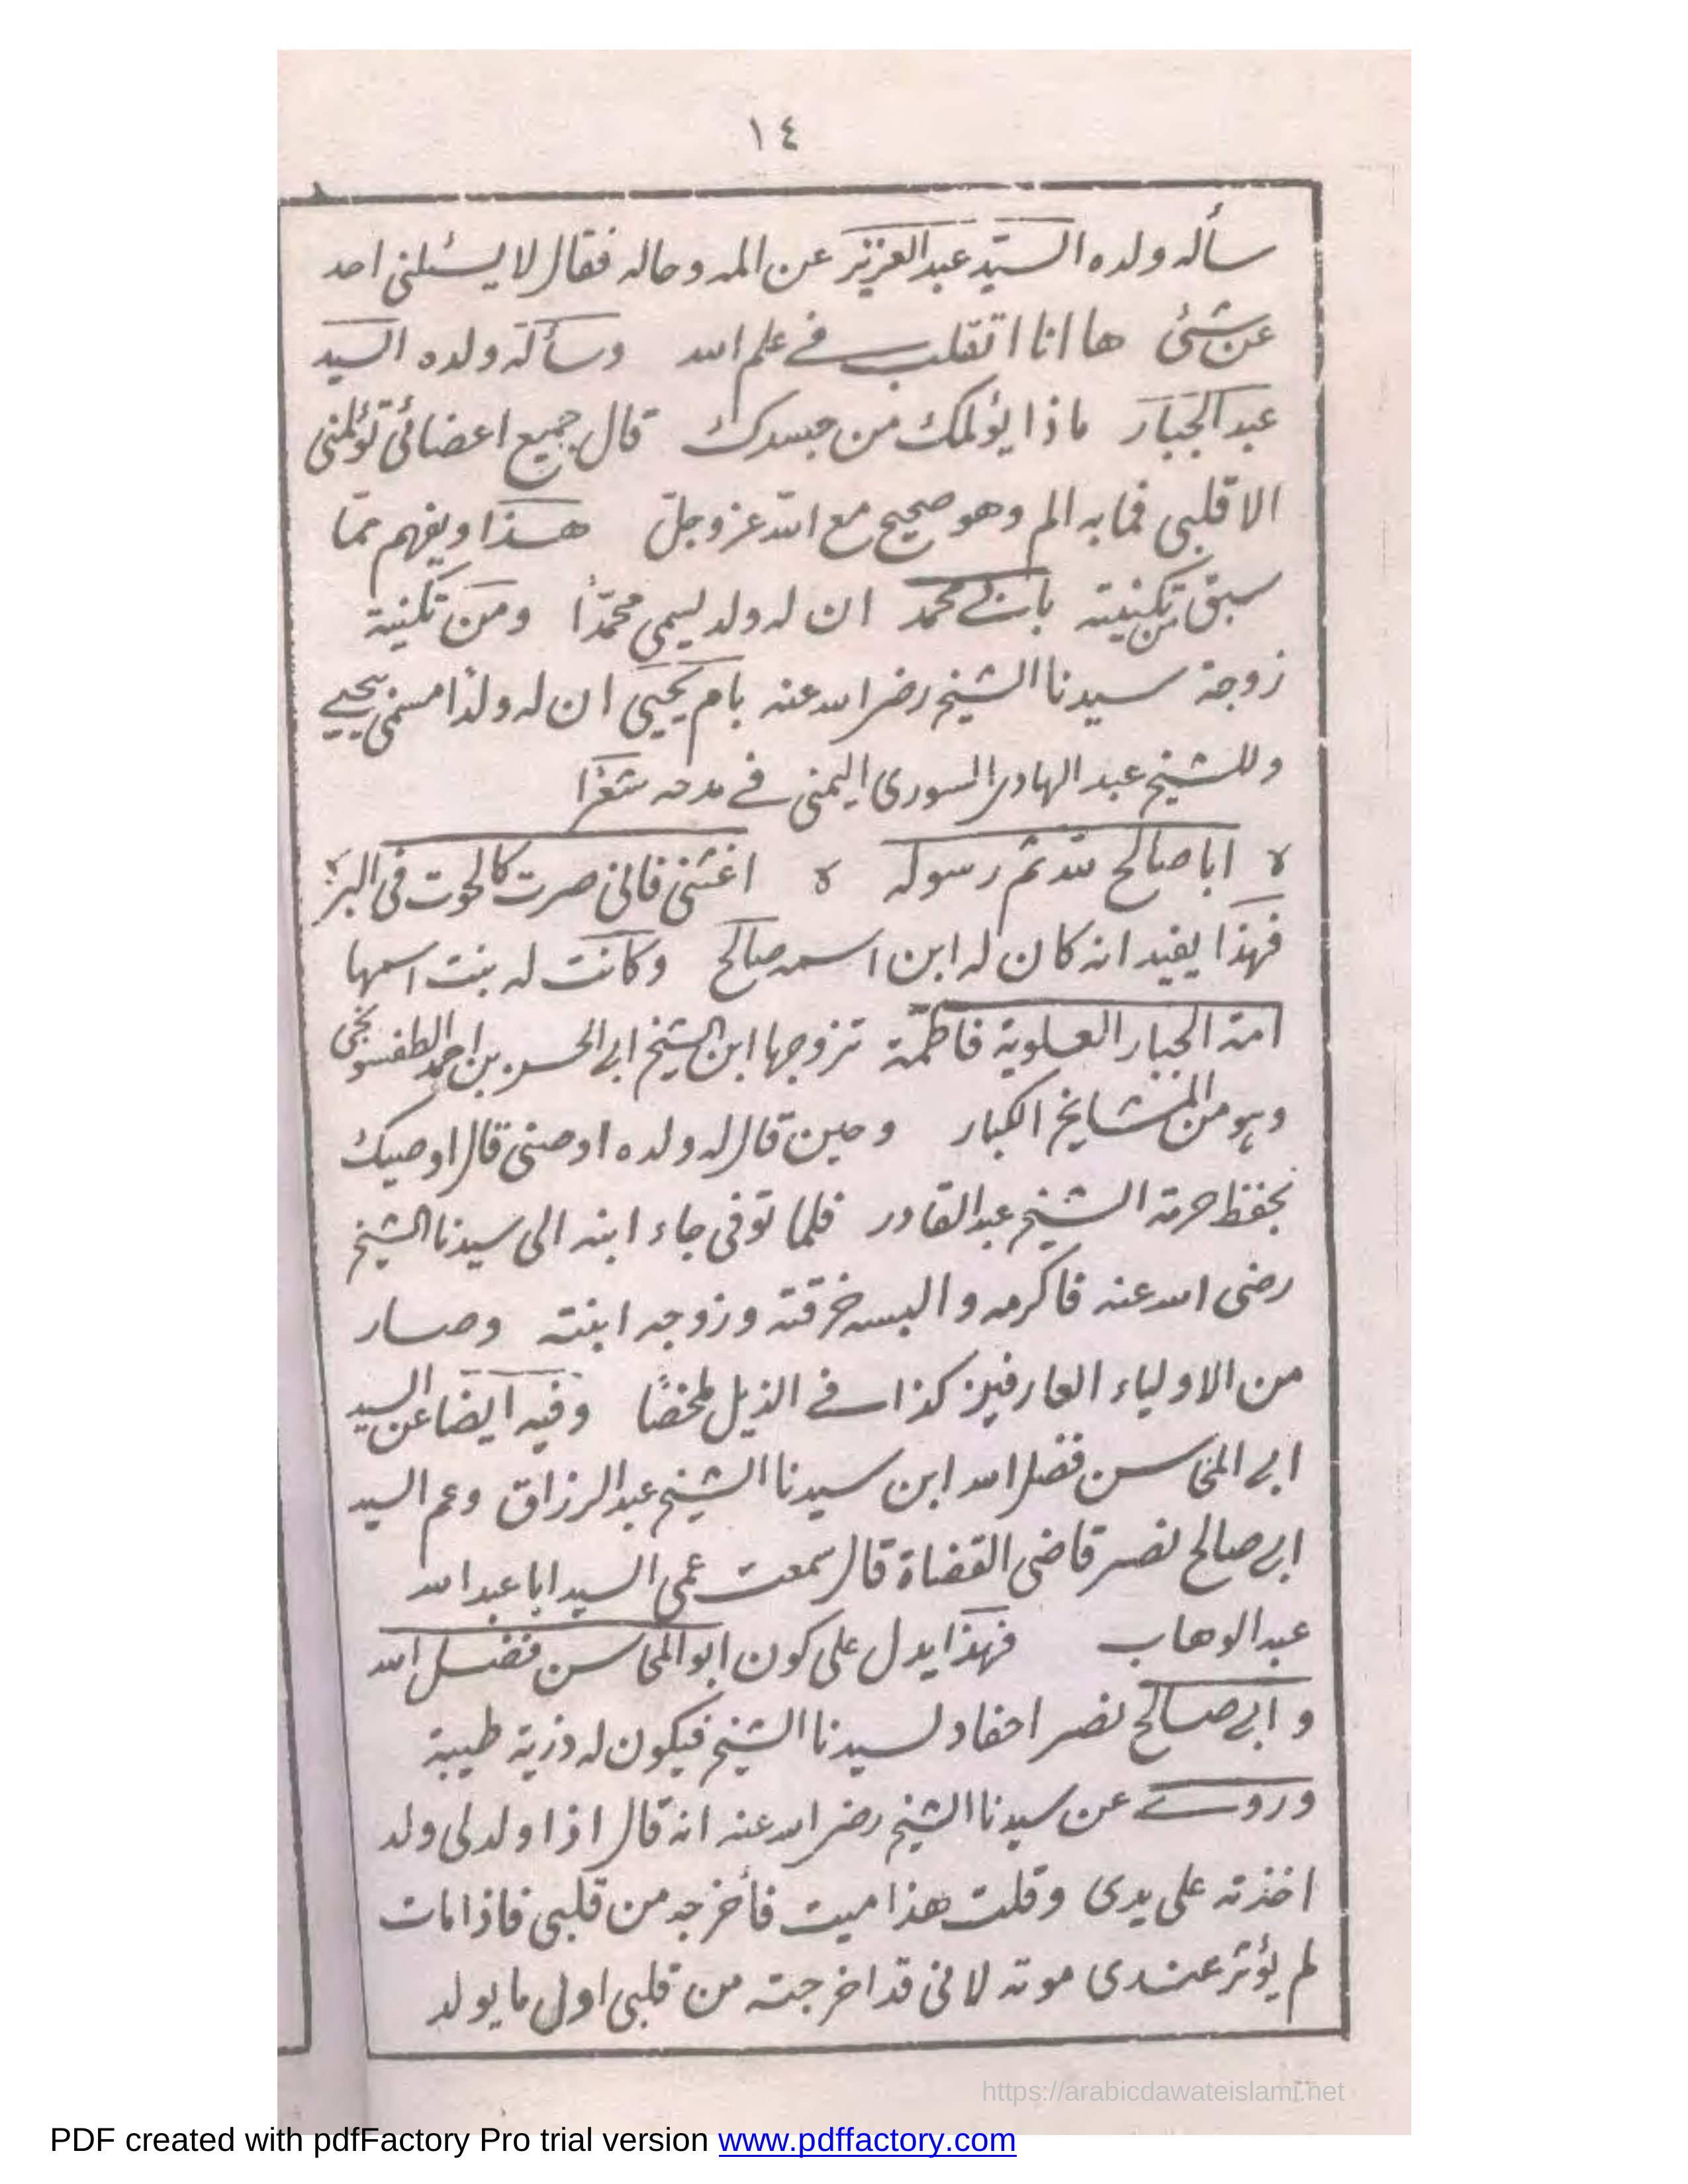 ١٤
سأله ولده السيّد عبد العزيز عن المه وحاله فقال لا يسئلنى احد
عن شئ ها انا اتقلب فے علم الله وسألة ولده السيد
عبد الجبار ماذا يؤلمك من جسدك قال جميع اعضائى تؤلمنى
الا قلبى فمابه الم وهو صحيح مع الله عز وجلّ هذا ويفهم ممّا
سبق من تكنيته بابے محمد ان له ولد ليسمى محمدًا ومن تكنية
زوجة سيدنا الشيخ رضى الله عنه بام يحيى ان له ولدًا مسمى بيحيے
وللشيخ عبد الهادى السورى اليمنى فے مدحه شعرًا
ابا صالح لله ثم رسوله اغثنى فانى صرت كالحوت فى البرّ
فهذا يفيد انه كان له ابن اسمه صالح وكانت له بنت اسمها
امة الجبار العلوية فاطمة تزوجها ابن الشيخ ابى الحسن بن احمد الطفسونجى
وهو من المشايخ الكبار وحين قال له ولده اوصنى قال اوصيك
بحفظ حرمة الشيخ عبد القادر فلما توفى جاء ابنه الى سيدنا الشيخ
رضى الله عنه فاكرمه والبسه خرقته وزوجه ابنته وصار
من الاولياء العارفين كذا فے الذيل ملخصًا وفيه ايضا عن السيد
ابى المحاسن فضل الله ابن سيدنا الشيخ عبد الرزاق وعم السيد
ابى صالح نصر قاضى القضاة قال سمعت عمى السيد ابا عبد الله
عبد الوهاب فهذا يدل على كون ابو المحاسن فضل الله
و ابى صالح نصر احفاد لسيدنا الشيخ فيكون له ذرية طيبة
وروے عن سيدنا الشيخ رضى الله عنه انه قال اذا ولد لى ولد
اخذته على يدى وقلت هذا ميت فأخرجه من قلبى فاذا مات
لم يؤثر عندى موته لانى قد اخرجته من قلبى اول ما يولد
https://arabicdawateislami.net
PDF created with pdfFactory Pro trial version www.pdffactory.com